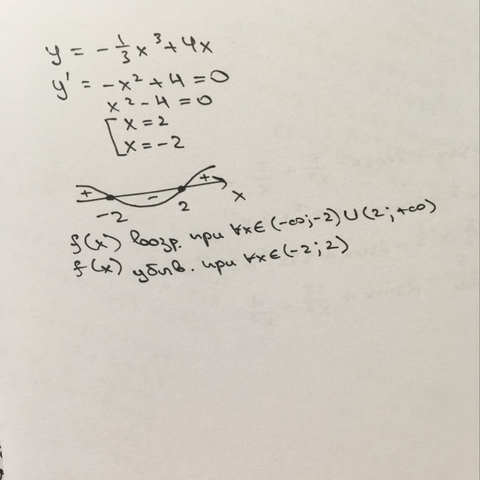 y = -1/3 x³ + 4x
y' = -x² + 4 = 0
x² - 4 = 0
[ x = 2
x = -2
+ - + x
-2 2
f(x) возр. при ∀x∈(-∞;-2)∪(2;+∞)
f(x) убыв. при ∀x∈(-2;2)